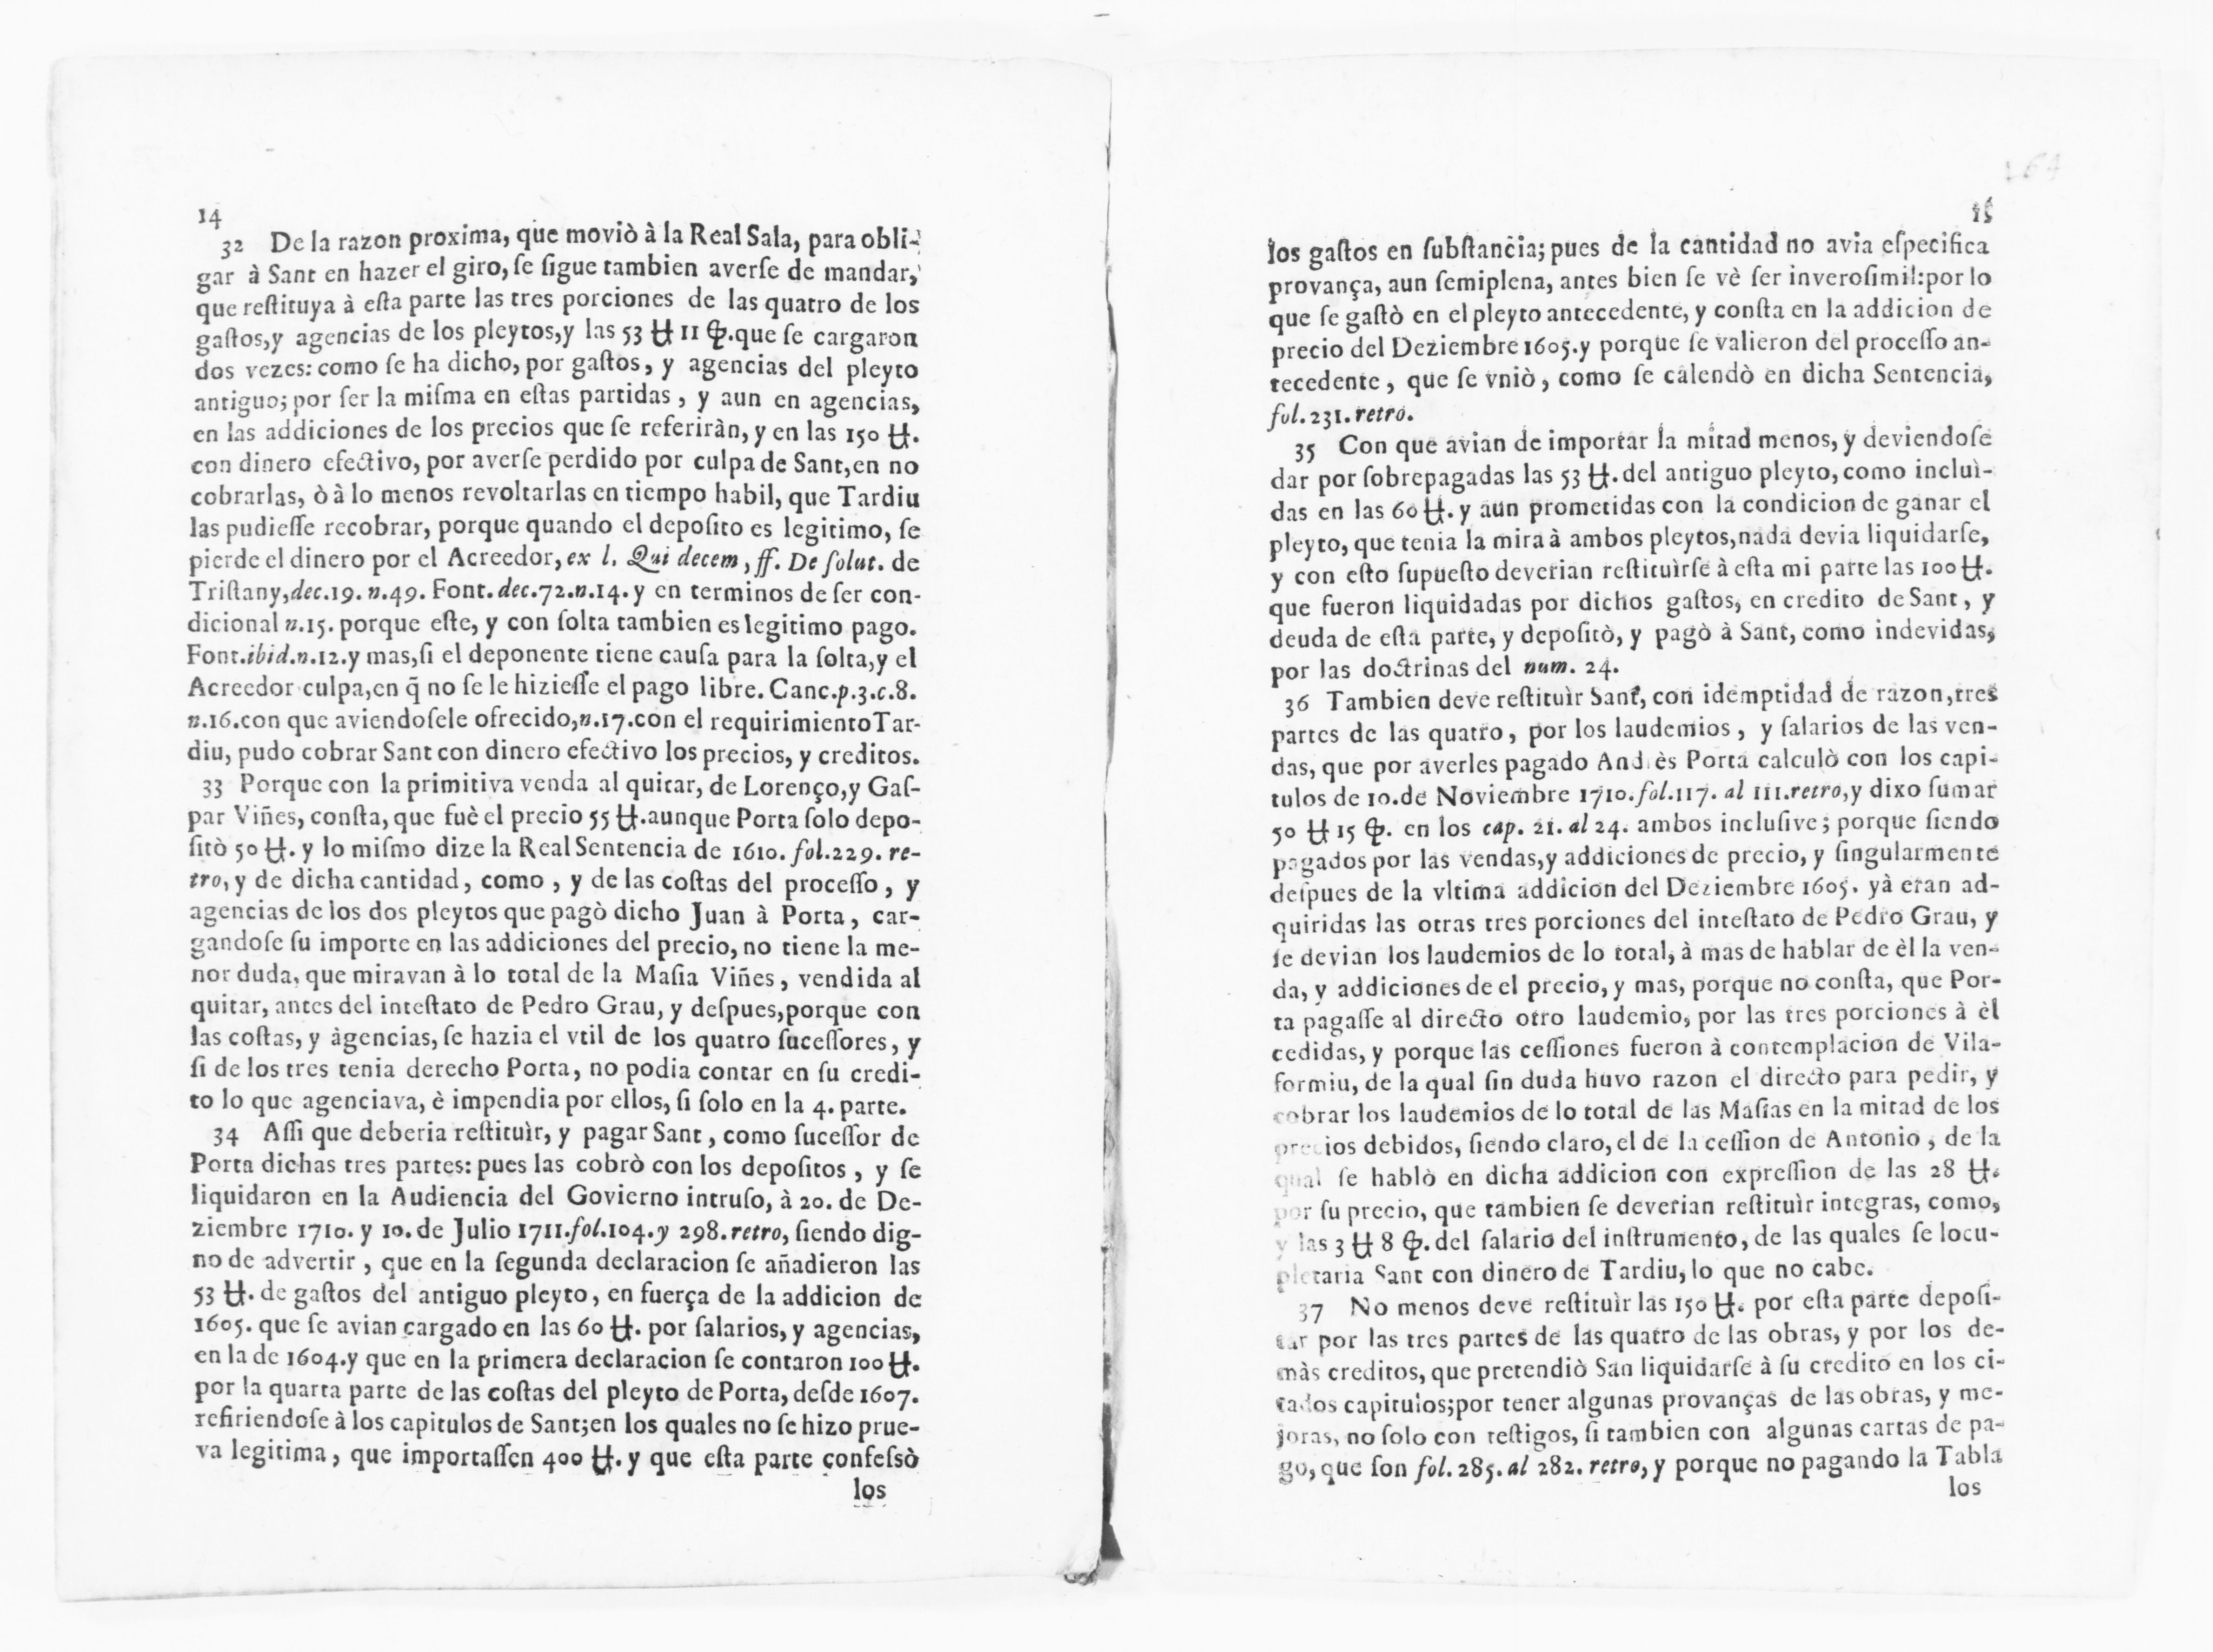 14
32 De la razon proxima, que moviò à la Real Sala, para obli-
gar à Sant en hazer el giro, ſe ſigue tambien averſe de mandar,
que reſtituya à eſta parte las tres porciones de las quatro de los
gaſtos,y agencias de los pleytos,y las 53 ₶ 11 ꝕ.que ſe cargaron
dos vezes: como ſe ha dicho, por gaſtos, y agencias del pleyto
antiguo; por ſer la miſma en eſtas partidas, y aun en agencias,
en las addiciones de los precios que ſe referiràn, y en las 150 ₶.
con dinero efectivo, por averſe perdido por culpa de Sant,en no
cobrarlas, ò à lo menos revoltarlas en tiempo habil, que Tardiu
las pudieſſe recobrar, porque quando el depoſito es legitimo, ſe
pierde el dinero por el Acreedor, ex l. Qui decem, ff. De ſolut. de
Triſtany,dec.19. n.49. Font. dec.72.n.14. y en terminos de ſer con-
dicional n.15. porque eſte, y con ſolta tambien es legitimo pago.
Font.ibid.n.12.y mas,ſi el deponente tiene cauſa para la ſolta,y el
Acreedor culpa,en q̃ no ſe le hizieſſe el pago libre. Canc.p.3.c.8.
n.16.con que aviendoſele ofrecido,n.17.con el requirimiento Tar-
diu, pudo cobrar Sant con dinero efectivo los precios, y creditos.
33 Porque con la primitiva venda al quitar, de Lorenço,y Gaſ-
par Viñes, conſta, que fuè el precio 55 ₶.aunque Porta ſolo depo-
ſitò 50 ₶. y lo miſmo dize la Real Sentencia de 1610. fol.229. re-
tro, y de dicha cantidad, como, y de las coſtas del proceſſo, y
agencias de los dos pleytos que pagò dicho Juan à Porta, car-
gandoſe ſu importe en las addiciones del precio, no tiene la me-
nor duda, que miravan à lo total de la Maſia Viñes, vendida al
quitar, antes del inteſtato de Pedro Grau, y deſpues,porque con
las coſtas, y àgencias, ſe hazia el vtil de los quatro ſuceſſores, y
ſi de los tres tenia derecho Porta, no podia contar en ſu credi-
to lo que agenciava, è impendia por ellos, ſi ſolo en la 4. parte.
34 Aſſi que deberia reſtituìr, y pagar Sant, como ſuceſſor de
Porta dichas tres partes: pues las cobrò con los depoſitos, y ſe
liquidaron en la Audiencia del Govierno intruſo, à 20. de De-
ziembre 1710. y 10. de Julio 1711.fol.104.y 298.retro, ſiendo dig-
no de advertir, que en la ſegunda declaracion ſe añadieron las
53 ₶. de gaſtos del antiguo pleyto, en fuerça de la addicion de
1605. que ſe avian cargado en las 60 ₶. por ſalarios, y agencias,
en la de 1604.y que en la primera declaracion ſe contaron 100 ₶.
por la quarta parte de las coſtas del pleyto de Porta, deſde 1607.
refiriendoſe à los capitulos de Sant;en los quales no ſe hizo prue-
va legitima, que importaſſen 400 ₶. y que eſta parte confeſsò
los
15
los gaſtos en ſubſtancia; pues de la cantidad no avia eſpecifica
provança, aun ſemiplena, antes bien ſe vè ſer inveroſimil:por lo
que ſe gaſtò en el pleyto antecedente, y conſta en la addicion de
precio del Deziembre 1605.y porque ſe valieron del proceſſo an-
tecedente, que ſe vniò, como ſe calendò en dicha Sentencia,
fol. 231. retro.
35 Con que avian de importar la mitad menos, y deviendoſe
dar por ſobrepagadas las 53 ₶. del antiguo pleyto, como incluì-
das en las 60 ₶. y aun prometidas con la condicion de ganar el
pleyto, que tenia la mira à ambos pleytos,nada devia liquidarſe,
y con eſto ſupueſto deverian reſtituìrſe à eſta mi parte las 100 ₶.
que fueron liquidadas por dichos gaſtos, en credito de Sant, y
deuda de eſta parte, y depoſitò, y pagò à Sant, como indevidas,
por las doctrinas del num. 24.
36 Tambien deve reſtituìr Sant, con idemptidad de razon,tres
partes de las quatro, por los laudemios, y ſalarios de las ven-
das, que por averles pagado Andrès Porta calculò con los capi-
tulos de 10.de Noviembre 1710.fol.117. al 111.retro,y dixo ſumar
50 ₶ 15 ꝕ. en los cap. 21. al 24. ambos incluſive; porque ſiendo
pagados por las vendas,y addiciones de precio, y ſingularmente
deſpues de la vltima addicion del Deziembre 1605. yà eran ad-
quiridas las otras tres porciones del inteſtato de Pedro Grau, y
ſe devian los laudemios de lo total, à mas de hablar de èl la ven-
da, y addiciones de el precio, y mas, porque no conſta, que Por-
ta pagaſſe al directo otro laudemio, por las tres porciones à èl
cedidas, y porque las ceſſiones fueron à contemplacion de Vila-
formiu, de la qual ſin duda huvo razon el directo para pedir, y
cobrar los laudemios de lo total de las Maſias en la mitad de los
precios debidos, ſiendo claro, el de la ceſſion de Antonio, de la
qual ſe hablò en dicha addicion con expreſſion de las 28 ₶.
por ſu precio, que tambien ſe deverian reſtituìr integras, como,
y las 3 ₶ 8 ꝕ. del ſalario del inſtrumento, de las quales ſe locu-
pletaria Sant con dinero de Tardiu, lo que no cabe.
37 No menos deve reſtituìr las 150 ₶. por eſta parte depoſi-
tar por las tres partes de las quatro de las obras, y por los de-
màs creditos, que pretendiò San liquidarſe à ſu credito en los ci-
tados capitulos;por tener algunas provanças de las obras, y me-
joras, no ſolo con teſtigos, ſi tambien con algunas cartas de pa-
go, que ſon fol. 285. al 282. retro, y porque no pagando la Tabla
los